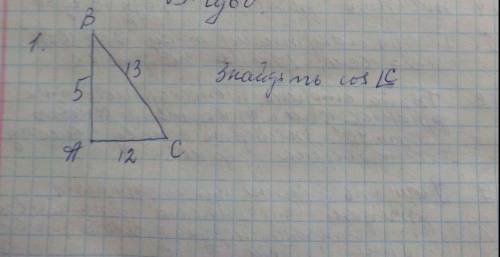 B
1.
13
5
Знайдіть cos ∠C
A
12
C